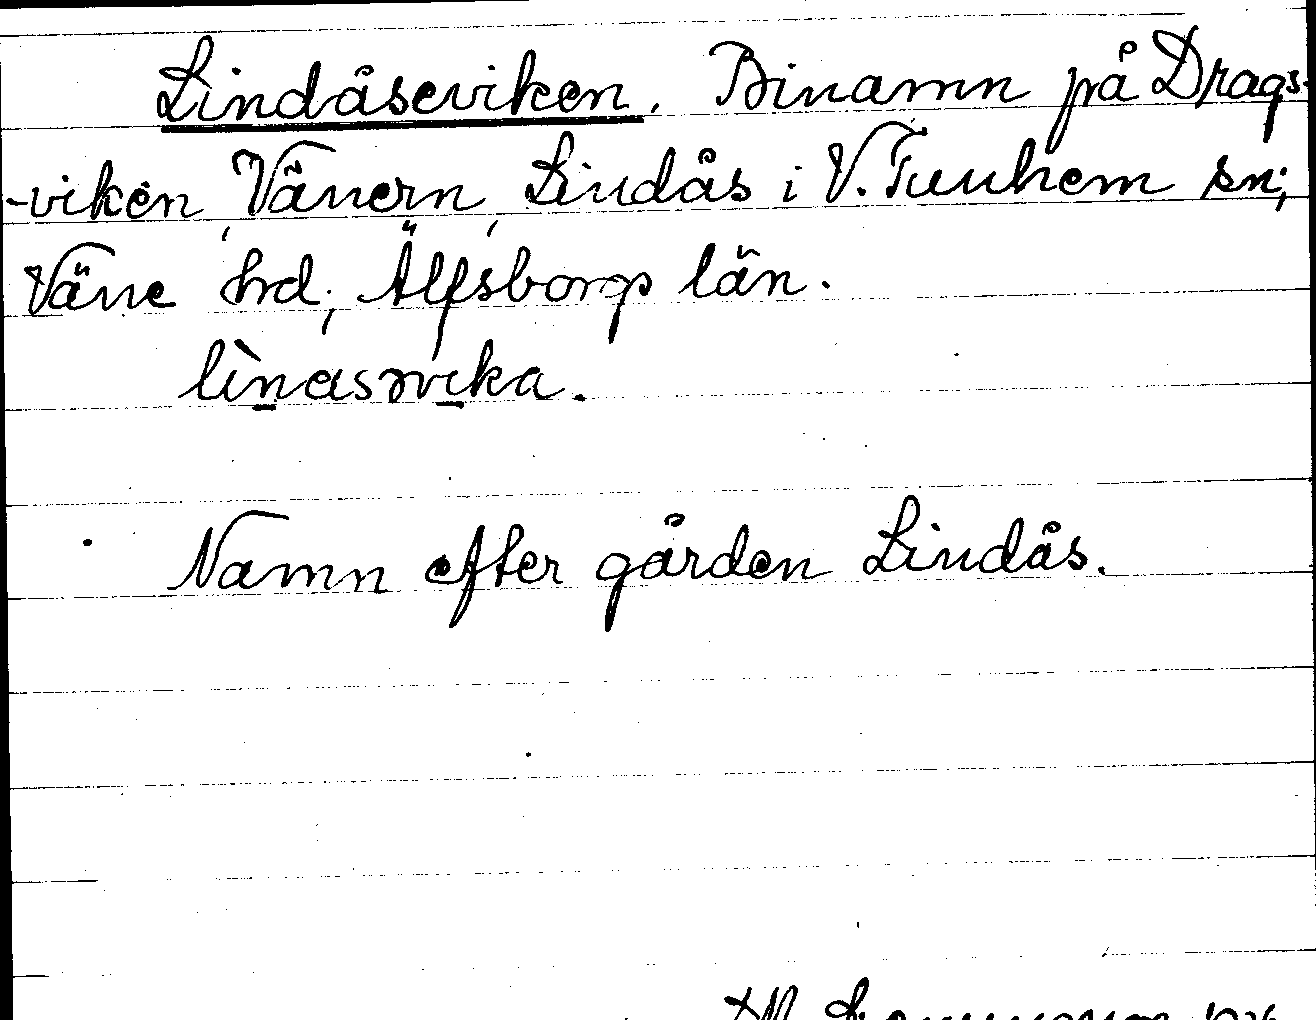 Lindåseviken. Binamn på Drags-
-viken, Vänern, Lindås i V. Tunhem sn;
Väne hrd; Älfsborgs län.
lìnasəvika.
Namn efter gården Lindås.